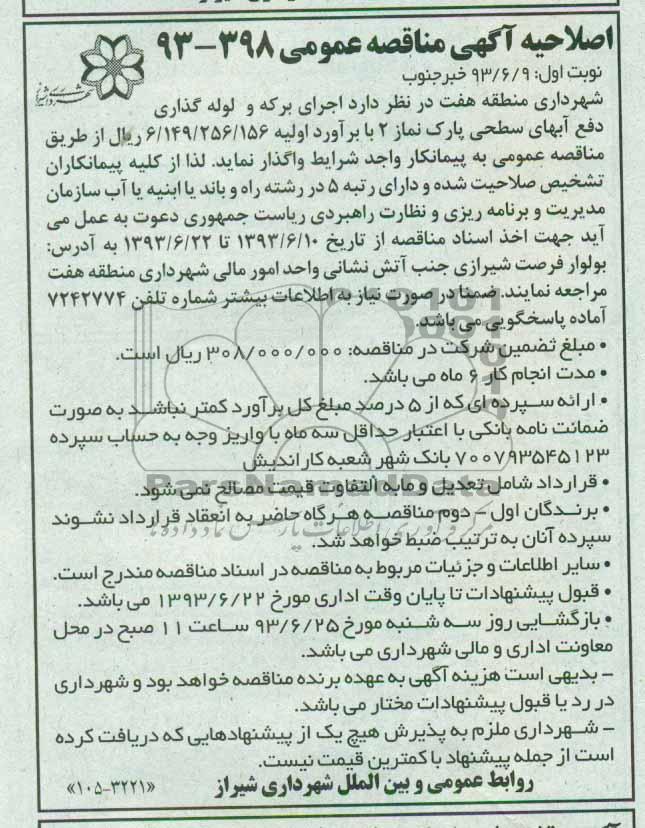 اصلاحیه آگهی مناقصه عمومی ۳۹۸-۹۳
نوبت اول: ۹۳/۶/۹ خبرجنوب
شهرداری منطقه هفت در نظر دارد اجرای برکه و لوله گذاری
دفع آبهای سطحی پارک نماز ۲ با برآورد اولیه ۶/۱۴۹/۲۵۶/۱۵۶ ریال از طریق
مناقصه عمومی به پیمانکار واجد شرایط واگذار نماید. لذا از کلیه پیمانکاران
تشخیص صلاحیت شده و دارای رتبه ۵ در رشته راه و باند یا ابنیه یا آب سازمان
مدیریت و برنامه ریزی و نظارت راهبردی ریاست جمهوری دعوت به عمل می
آید جهت اخذ اسناد مناقصه از تاریخ ۱۳۹۳/۶/۱۰ تا ۱۳۹۳/۶/۲۲ به آدرس:
بولوار فرصت شیرازی جنب آتش نشانی واحد امور مالی شهرداری منطقه هفت
مراجعه نمایند. ضمنا در صورت نیاز به اطلاعات بیشتر شماره تلفن ۷۲۴۲۷۷۴
آماده پاسخگویی می باشد.
• مبلغ تضمین شرکت در مناقصه: ۳۰۸/۰۰۰/۰۰۰ ریال است.
• مدت انجام کار ۶ ماه می باشد.
• ارائه سپرده ای که از ۵ درصد مبلغ کل برآورد کمتر نباشد به صورت
ضمانت نامه بانکی با اعتبار حداقل سه ماه با واریز وجه به حساب سپرده
۷۰۰۷۹۳۵۴۵۱۲۳ بانک شهر شعبه کاراندیش
ParsNamadData
• قرارداد شامل تعدیل و مابه التفاوت قیمت مصالح نمی شود.
• برندگان اول - دوم مناقصه هرگاه حاضر به انعقاد قرارداد نشوند
سپرده آنان به ترتیب ضبط خواهد شد.
• سایر اطلاعات و جزئیات مربوط به مناقصه در اسناد مناقصه مندرج است.
• قبول پیشنهادات تا پایان وقت اداری مورخ ۱۳۹۳/۶/۲۲ می باشد.
• بازگشایی روز سه شنبه مورخ ۹۳/۶/۲۵ ساعت ۱۱ صبح در محل
معاونت اداری و مالی شهرداری می باشد.
- بدیهی است هزینه آگهی به عهده برنده مناقصه خواهد بود و شهرداری
در رد یا قبول پیشنهادات مختار می باشد.
- شهرداری ملزم به پذیرش هیچ یک از پیشنهادهایی که دریافت کرده
است از جمله پیشنهاد با کمترین قیمت نیست.
روابط عمومی و بین الملل شهرداری شیراز «۱۰۵-۳۲۲۱»